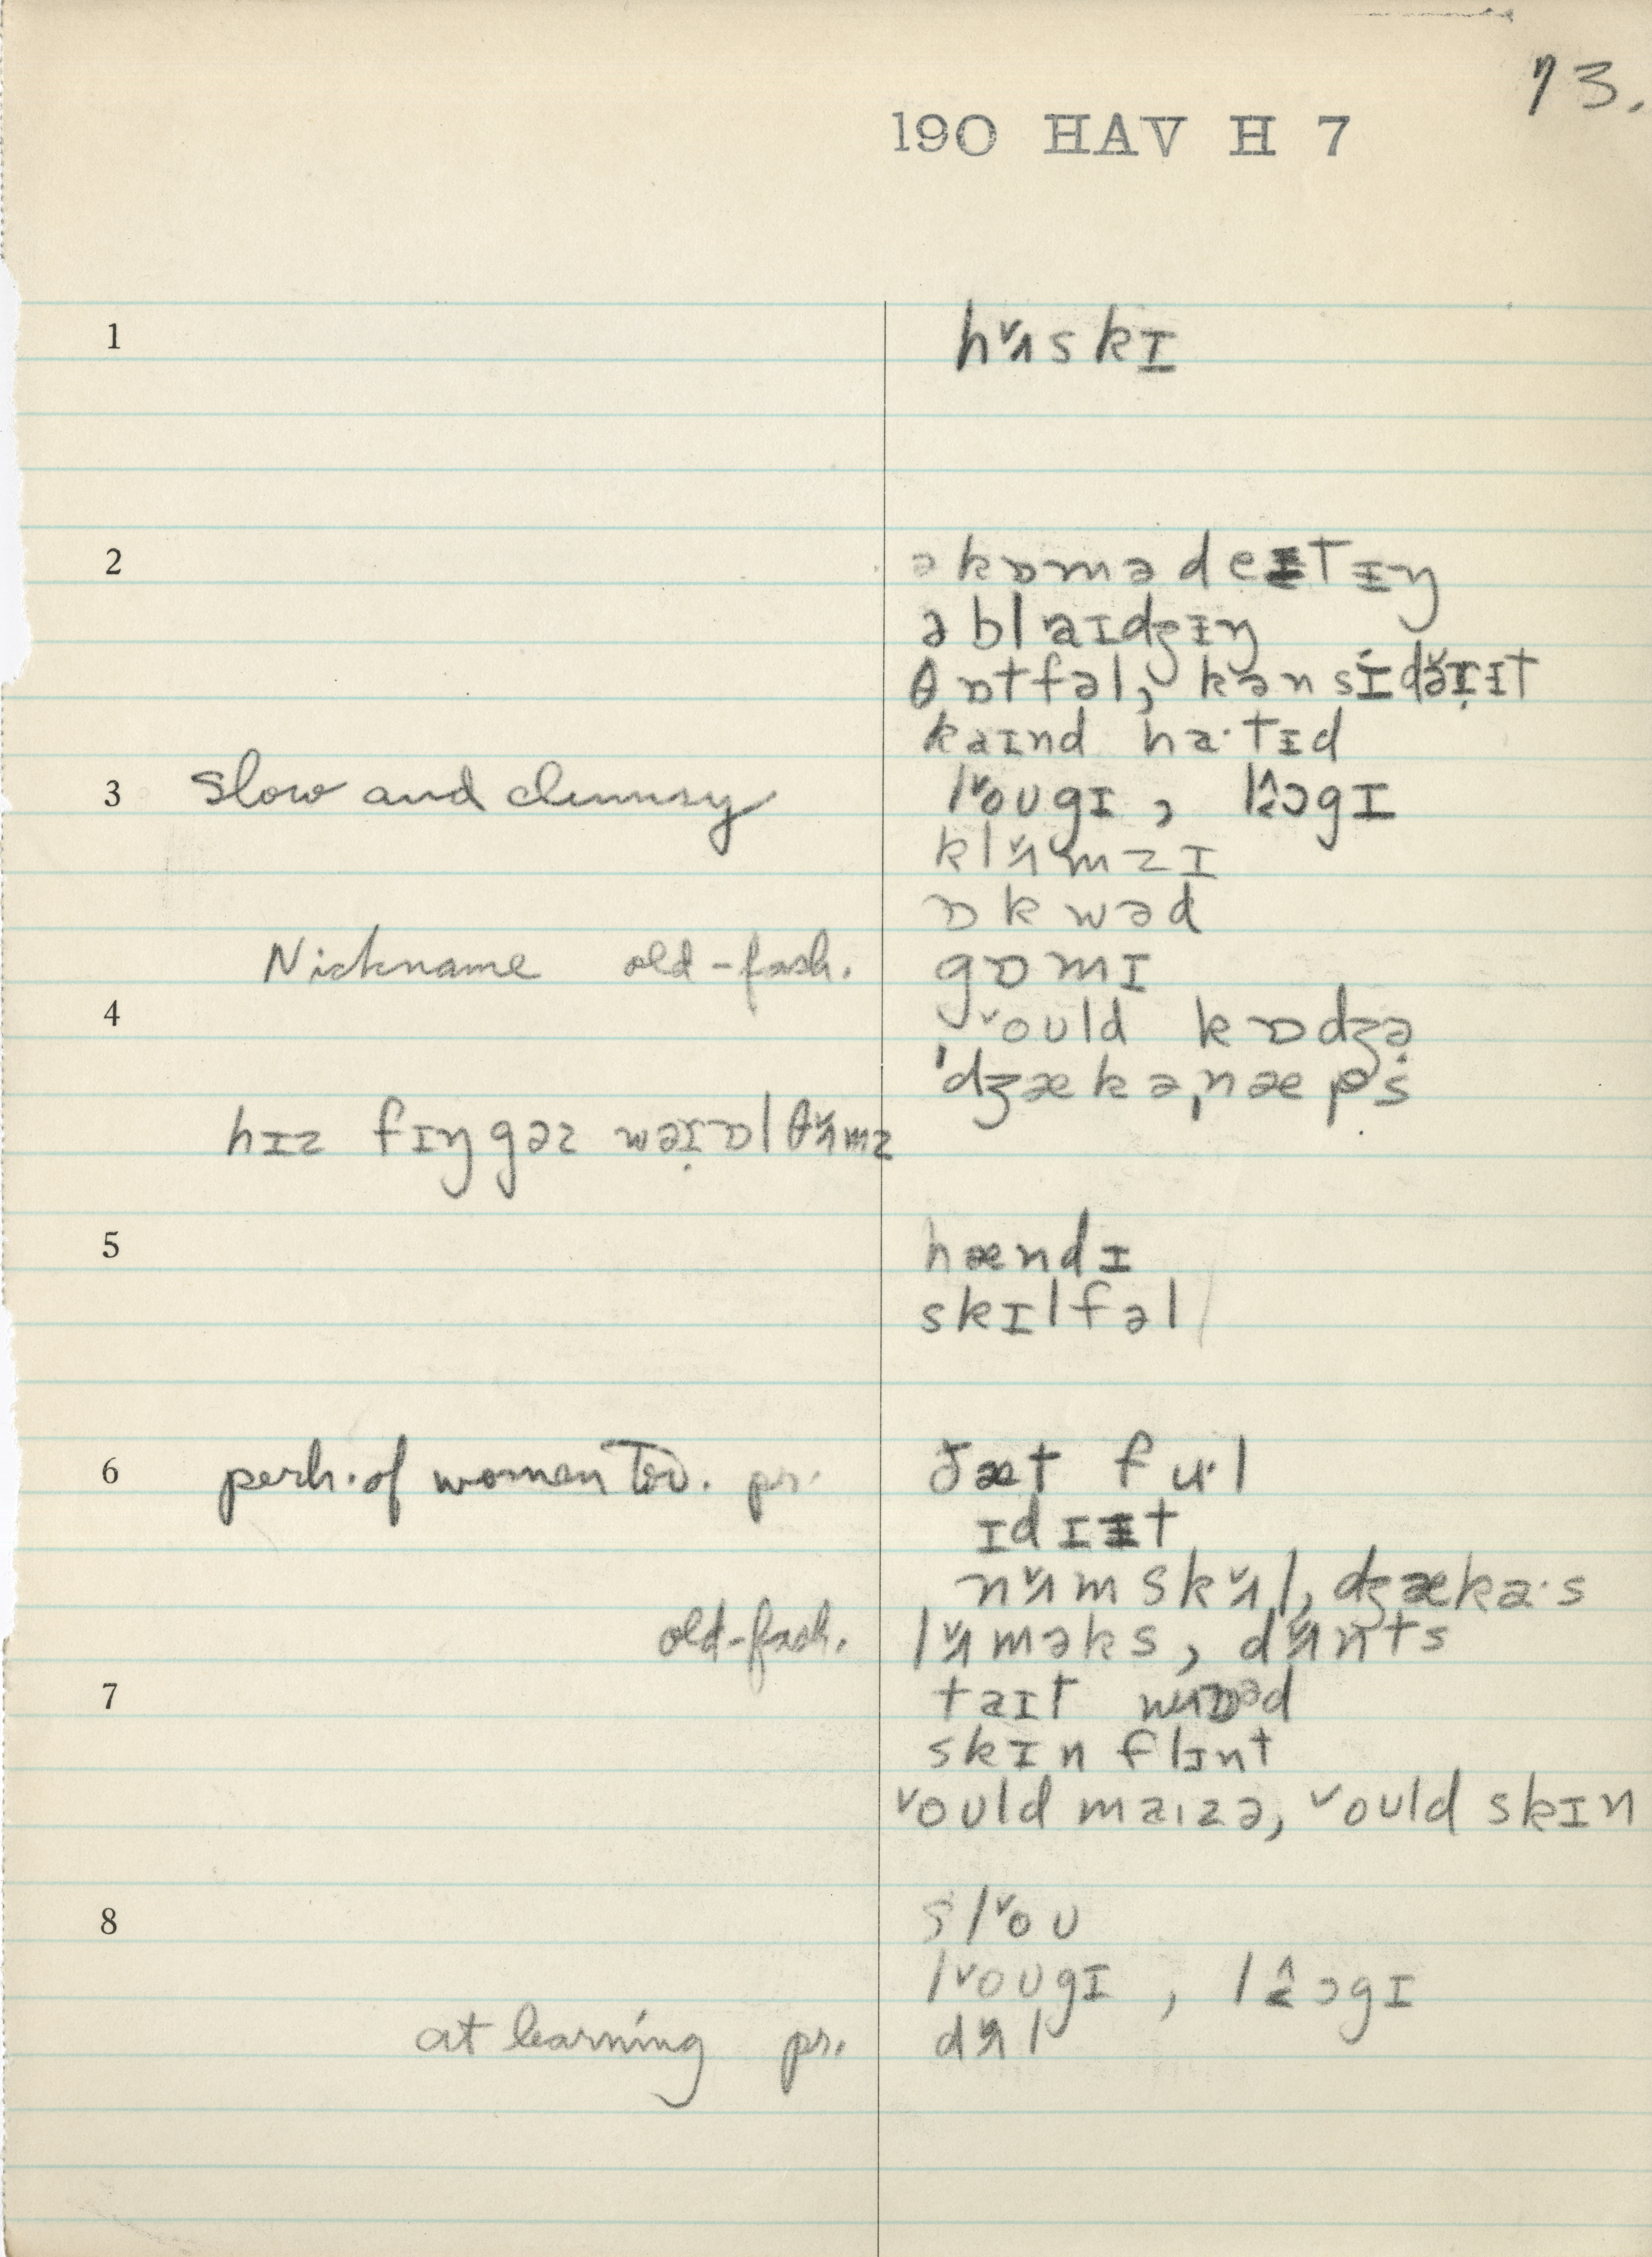 73.
190 HAV H 7
1 hʌ̌skɪ
2 əkɒmədeɪtɪŋ
əblaɪdʒɪŋ
θɒtfəl, kənsídə̌ɪ̣ɪt
kaɪnd ha·tɪd
3 slow and clumsy lˇoʊgɪ, lɔgɪ
klʌ̌mzɪ
ɒkwəd
Nickname old-fash. gɒmɪ
4 ˇoʊld kɒdʒə
ˈdʒækəˌnæps
hɪz fɪŋgəz wəɪ̣ɒl θʌ̌mz
5 hændɪ
skɪlfəl
6 perh. of women too. pr. ðæt fu·l
ɪdɪɪt
nʌ̌mskʌ̌l, dʒæka·s
old-fash. lʌ̌məks, dʌ̌nts
7 taɪt
skɪnflɪnt
ˇoʊld maɪzə, ˇoʊld skɪn
8 slˇoʊ
lˇoʊgɪ, lɔgɪ
at learning pr. dʌ̌l